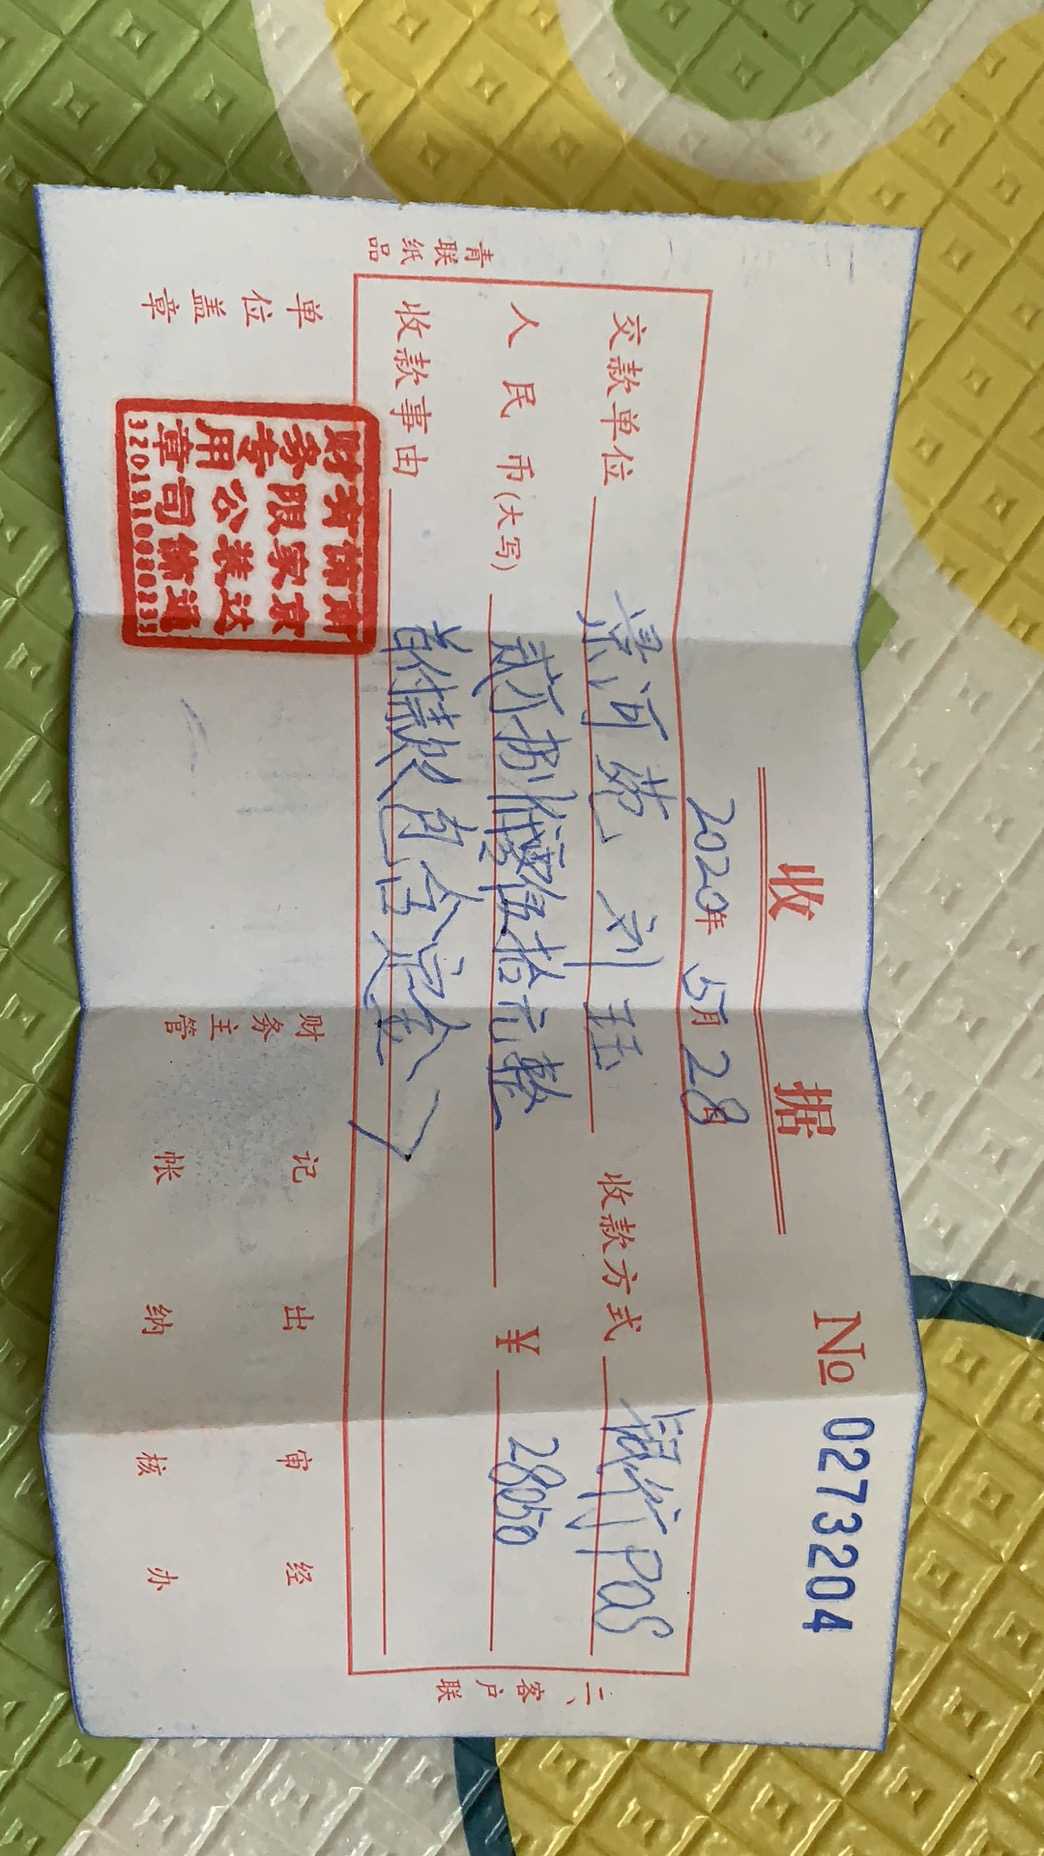 收 据
№ 0273204
2020年 5月 28日
交款单位 景河苑 刘珏 收款方式 银行POS
人民币(大写) 贰万捌仟零伍拾元整 ¥ 28050
收款事由 首付款内含定金
单位盖章 财务主管 记帐 出纳 审核 经办
青联纸品
二、客户联
南京通达装饰有限公司
财务专用章